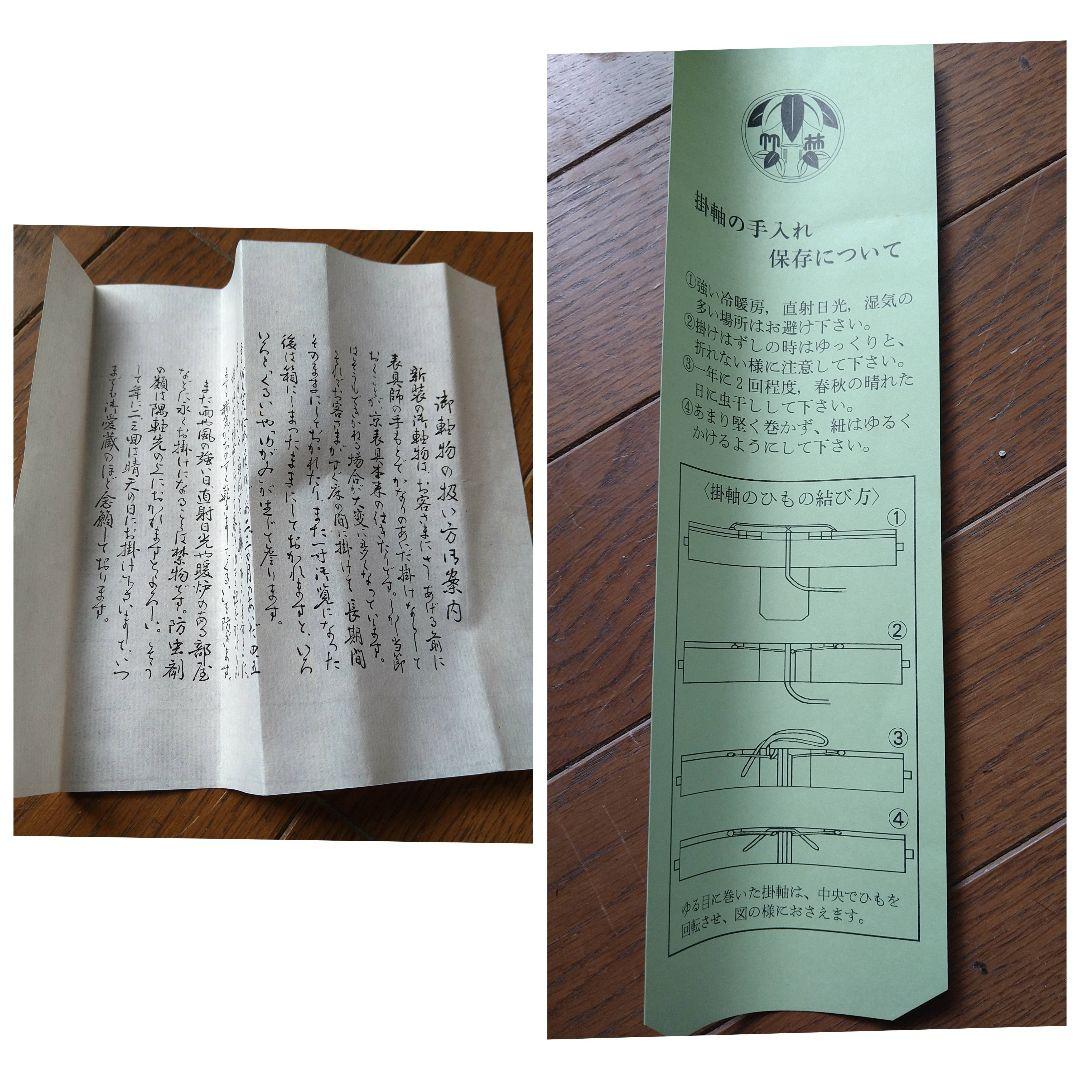 御軸物の扱い方御案内
新装の御軸物は、お客さまにさしあげる前に
表具師の手もとでかなりのあいだ掛けならして
おくことが京表具本来の仕きたりです。しかし当節
はそうしてきかねる場合が大変に多くなっています。
それでお客さまがすぐ床の間に掛けて長期間
そのままにしておかれたり、また一寸御覧になった
後は箱にしまったままにしておかれますと、いろ
いろと「くるい」や「ゆがみ」が生じて参ります。
また雨や風の強い日直射日光や暖炉のある部屋
などに永くお掛けになることは禁物です。防虫剤
の類は隅軸先の上におかれますとよろしい。どうぞ
して年に二三回は晴天の日にお掛け下さいまして、いつ
までも御愛蔵のほど念願しております。
竹林
掛軸の手入れ
保存について
①強い冷暖房，直射日光，湿気の
多い場所はお避け下さい。
②掛けはずしの時はゆっくりと、
折れない様に注意して下さい。
③一年に2回程度，春秋の晴れた
日に虫干しして下さい。
④あまり堅く巻かず、紐はゆるく
かけるようにして下さい。
〈掛軸のひもの結び方〉
①
②
③
④
ゆる目に巻いた掛軸は、中央でひもを
回転させ、図の様におさえます。